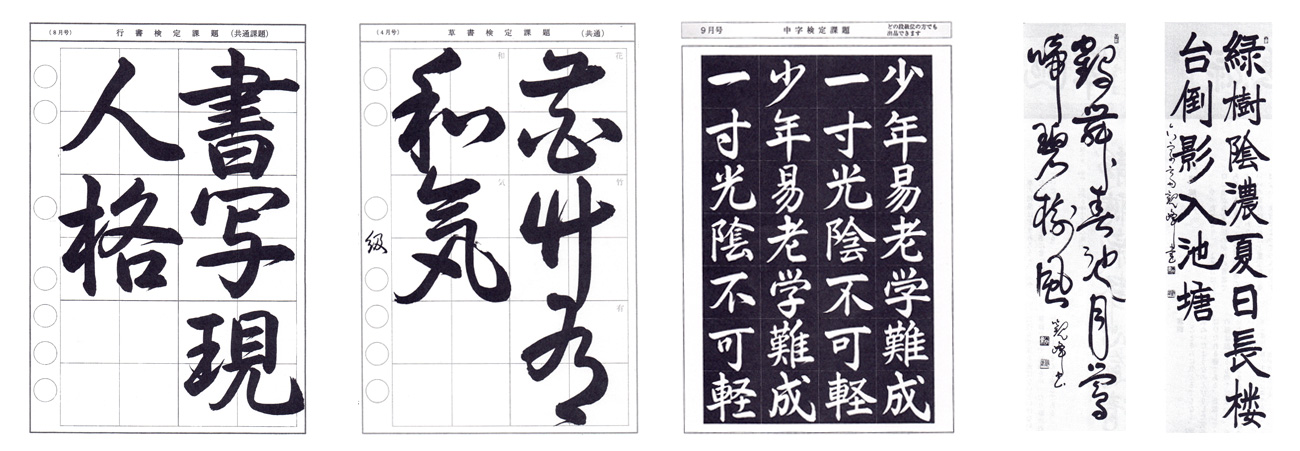 (8月号) 行書検定課題 (共通課題)
書写現
人格
(4月号) 草書検定課題 (共通)
花竹有
和気
花
竹
有
和
気
級
9月号 中字検定課題
どの段級位の方でも
出品できます
少年易老学難成
一寸光陰不可軽
少年易老学難成
一寸光陰不可軽
鶴舞春池月鶯
啼碧樹風
観峰書
緑樹陰濃夏日長楼
台倒影入池塘